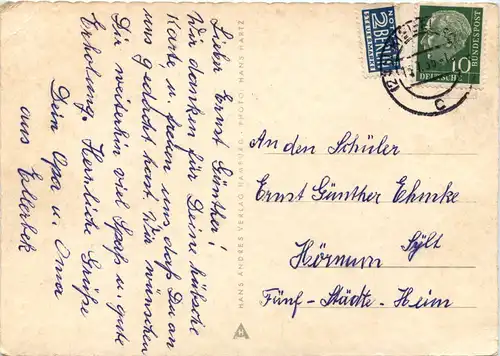 Lieber Ernst Günther!
Wir danken für Deine hübsche
Karte, u. freuen uns daß Du an
uns gedacht hast. Wir wünschen
Dir weiterhin viel Spaß u. gute
Erholung. Herzliche Grüße
Dein Opa u. Oma
aus Ellerbek
HANS ANDRES VERLAG HAMBURG · PHOTO: HANS HARTZ
NOTOPFER
2 BERLIN
STEUERMARKE
10
DEUTSCHE
BUNDESPOST
An den Schüler
Ernst Günther Ehmke
Sylt
Hörnum
Fünf-Städte-Heim